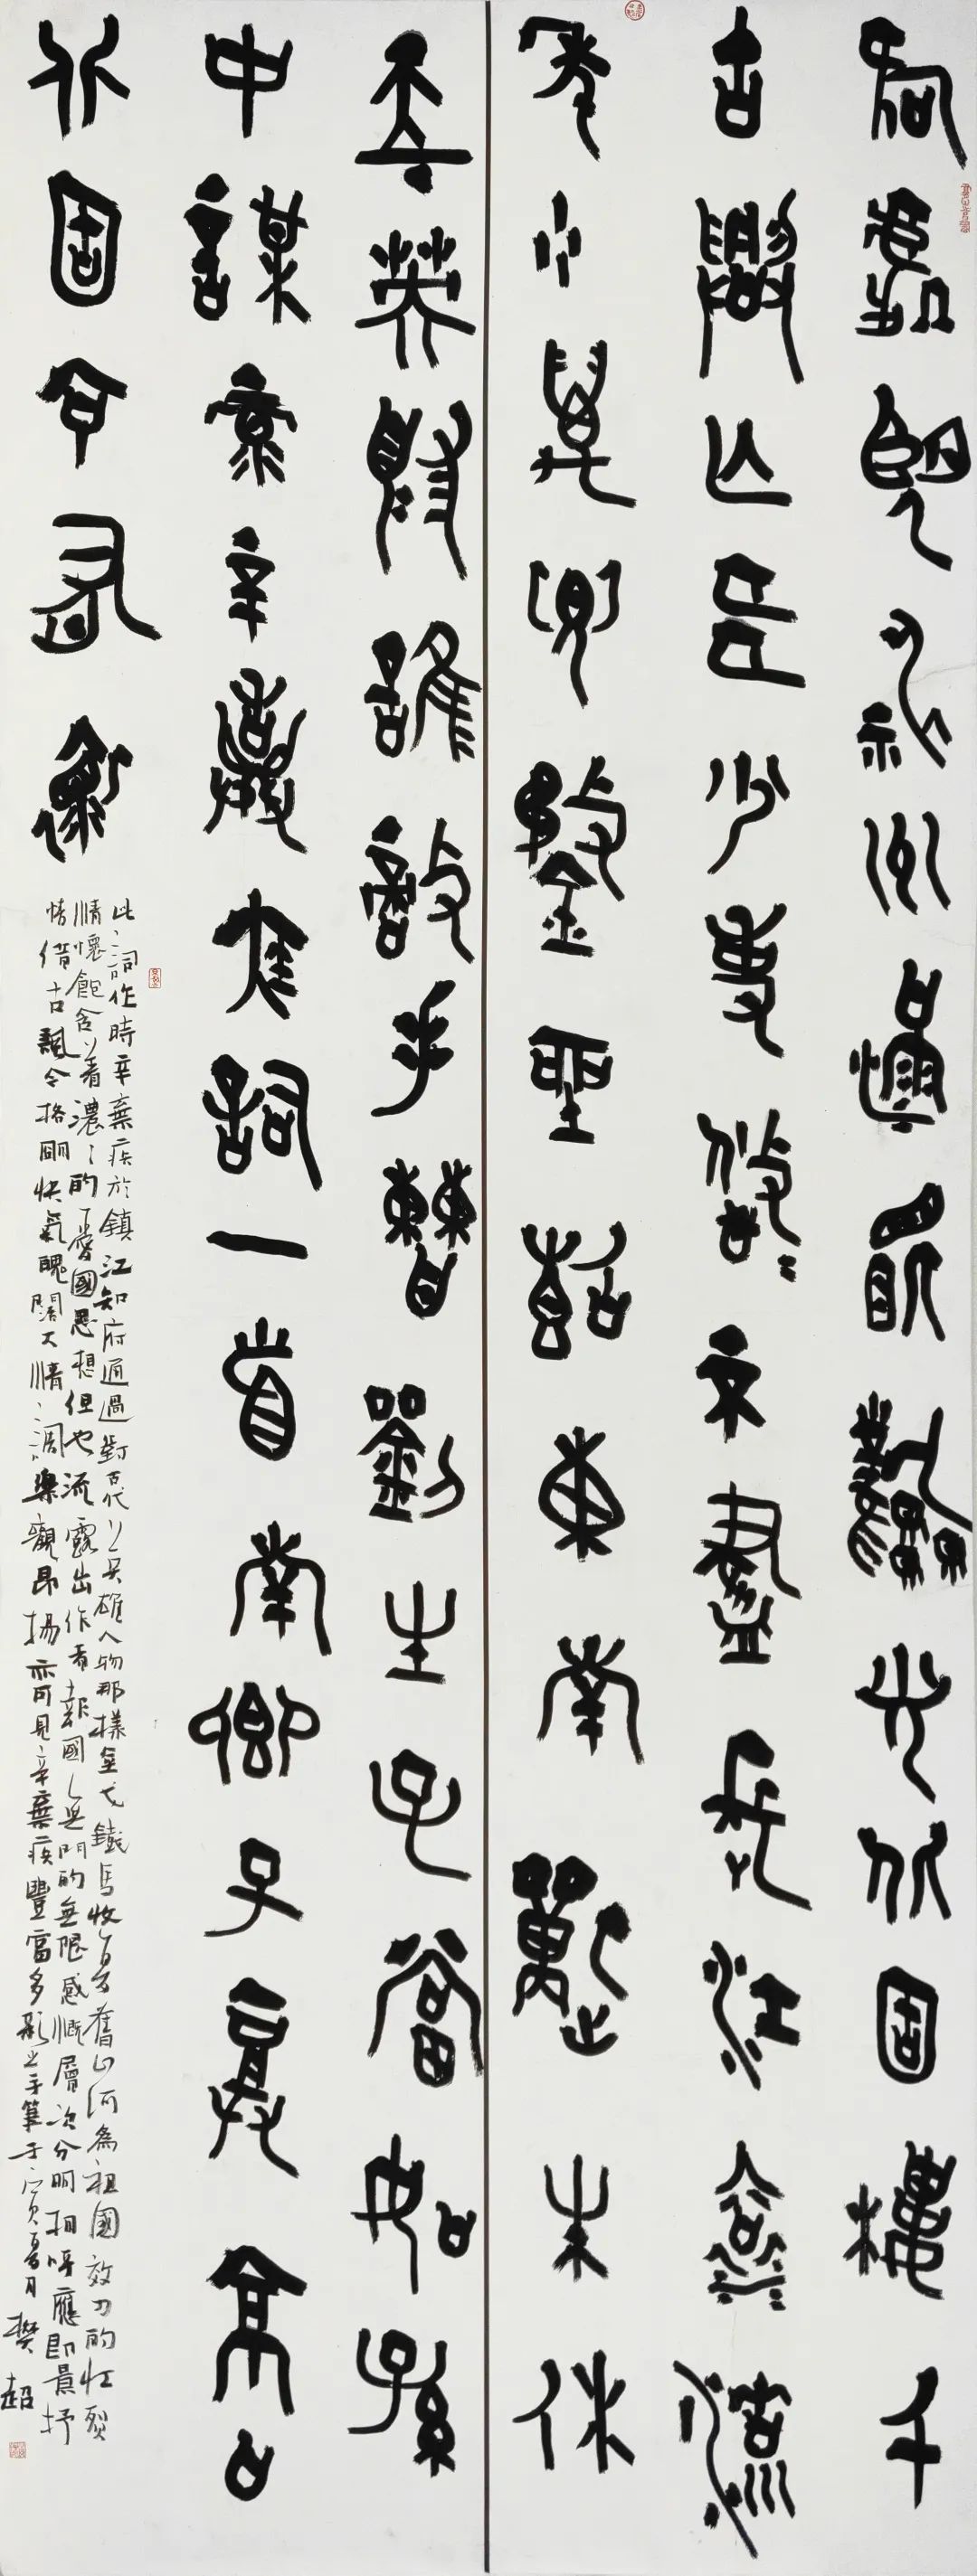 何處望神州滿眼風光北固樓千
古興亡多少事悠〻不盡長江滾〻流
年少萬兜鍪坐斷東南戰未休
天下英雄誰敵手曹劉生子當如孫
中謀辛棄疾詞一首南鄉子登京口
北固亭有懷
此詞作時辛棄疾於鎮江知府通過對古代英雄人物那樣金戈鐵馬收復舊山河為祖國效力的壯烈
情懷飽含着濃〻的愛國思想但也流露出作者報國無門的無限感慨層次分明相呼應即景抒
情借古諷今格明快氣魄闊大情調樂觀昂揚亦可見辛棄疾豐富多彩之手筆壬寅夏月樊超